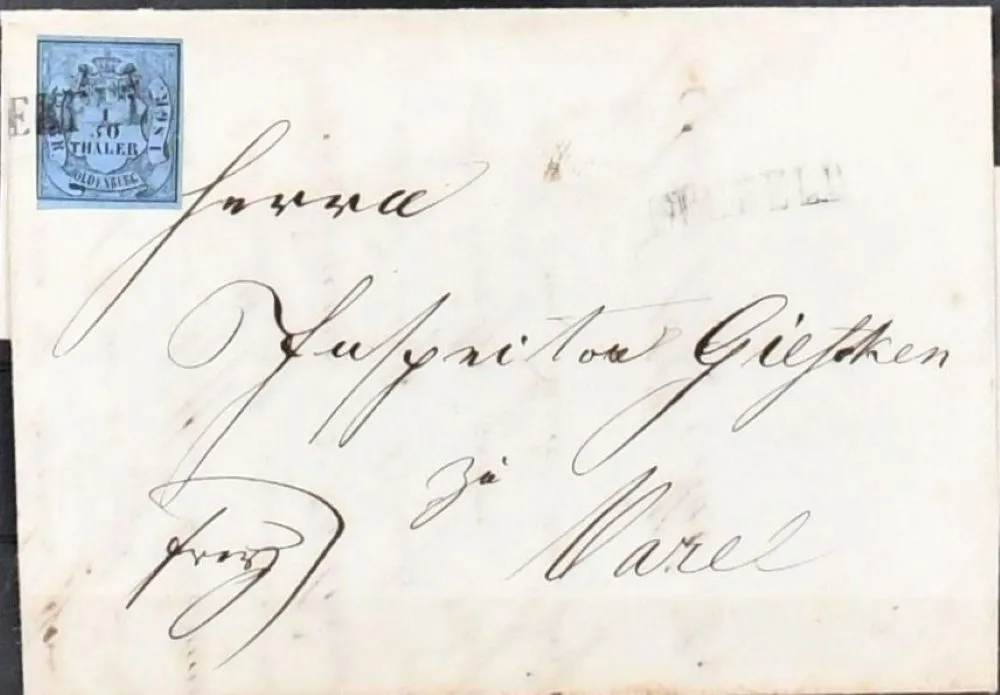 1
30
THALER
OLDENBURG
Herrn
Inspector Giesken
zu
Varel
frey